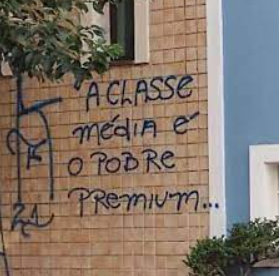 "A CLASSE
média é
O POBRE
PREMIUM...